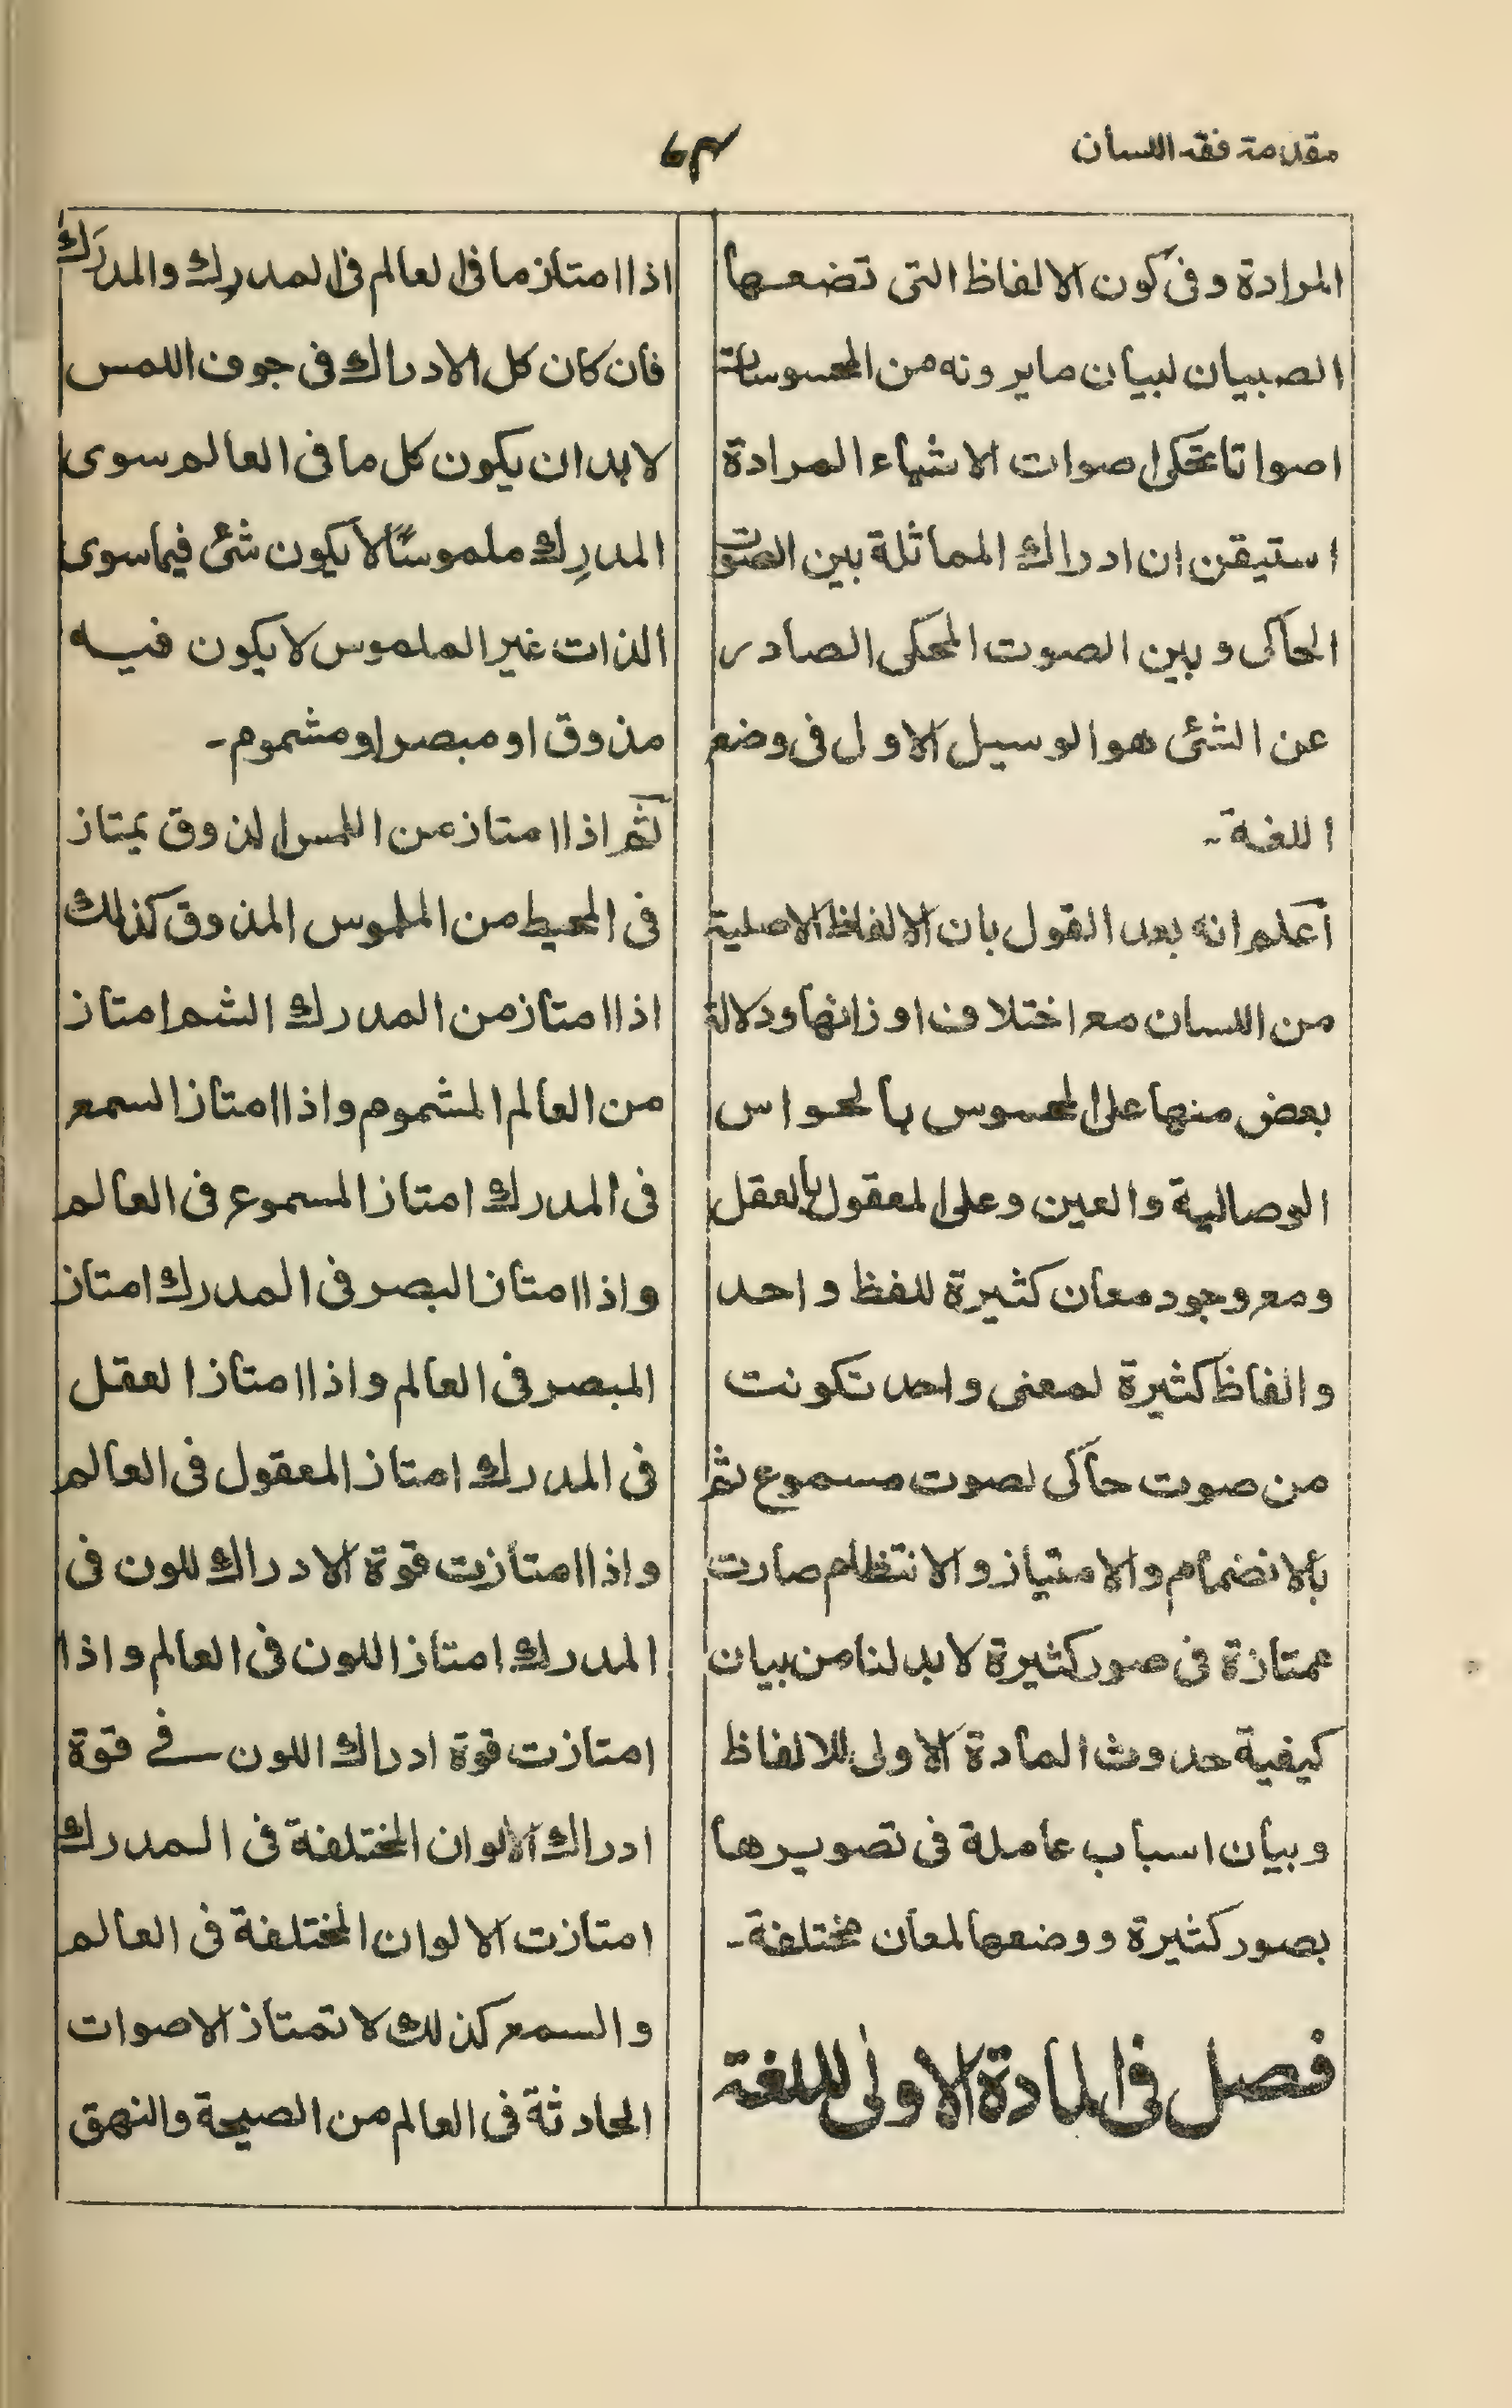 مقدمة فقه اللسان
المرادة وفى كون الالفاظ التى تضعها
الصبيان لبيان ما يرونه من المحسوسات
اصواتا تحكى اصوات الاشياء المرادة
استيقن ان ادراك المماثلة بين الصوت
الحاكى وبين الصوت المحكى الصادر
عن الشئ هو الوسيل الاول فى وضع
اللغة۔
اعلم انه بعد القول بان الالفاظ الاصلية
من اللسان مع اختلاف اوزانها ودلالة
بعض منها على المحسوس بالحواس
الوصالية والعين وعلى المعقول بالعقل
ومع وجود معان كثيرة للفظ واحد
والفاظ كثيرة لمعنى واحد تكونت
من صوت حاكى لصوت مسموع ثم
بالانضمام والامتياز والانتظام صارت
ممتازة فى صور كثيرة لابد لنا من بيان
كيفية حدوث المادة الاولى للالفاظ
وبيان اسباب عاملة فى تصويرها
بصور كثيرة ووضعها لمعان مختلفة۔
فصل فى المادة الاولىٰ للغة
اذا امتاز ما فى العالم فى المدرِك والمدرَك
فان كان كل الادراك فى جوف اللمس
لابد ان يكون كل ما فى العالم سوى
المدرِك ملموسًا لا يكون شئ فيما سوى
الذات غير الملموس لا يكون فيه
مذوق او مبصر او مشموم۔
ثم اذا امتاز عن اللمس الذوق يمتاز
فى المحيط من الملموس المذوق كذلك
اذا امتاز من المدرك الشم امتاز
من العالم المشموم واذا امتاز السمع
فى المدرك امتاز المسموع فى العالم
واذا امتاز البصر فى المدرك امتاز
المبصر فى العالم واذا امتاز العقل
فى المدرك امتاز المعقول فى العالم
واذا امتازت قوة الادراك للون فى
المدرك امتاز اللون فى العالم واذا
امتازت قوة ادراك اللون فے قوة
ادراك الالوان المختلفة فى المدرك
امتازت الالوان المختلفة فى العالم
والسمع كذلك لا تمتاز الاصوات
الحادثة فى العالم من الصيحة والنهق